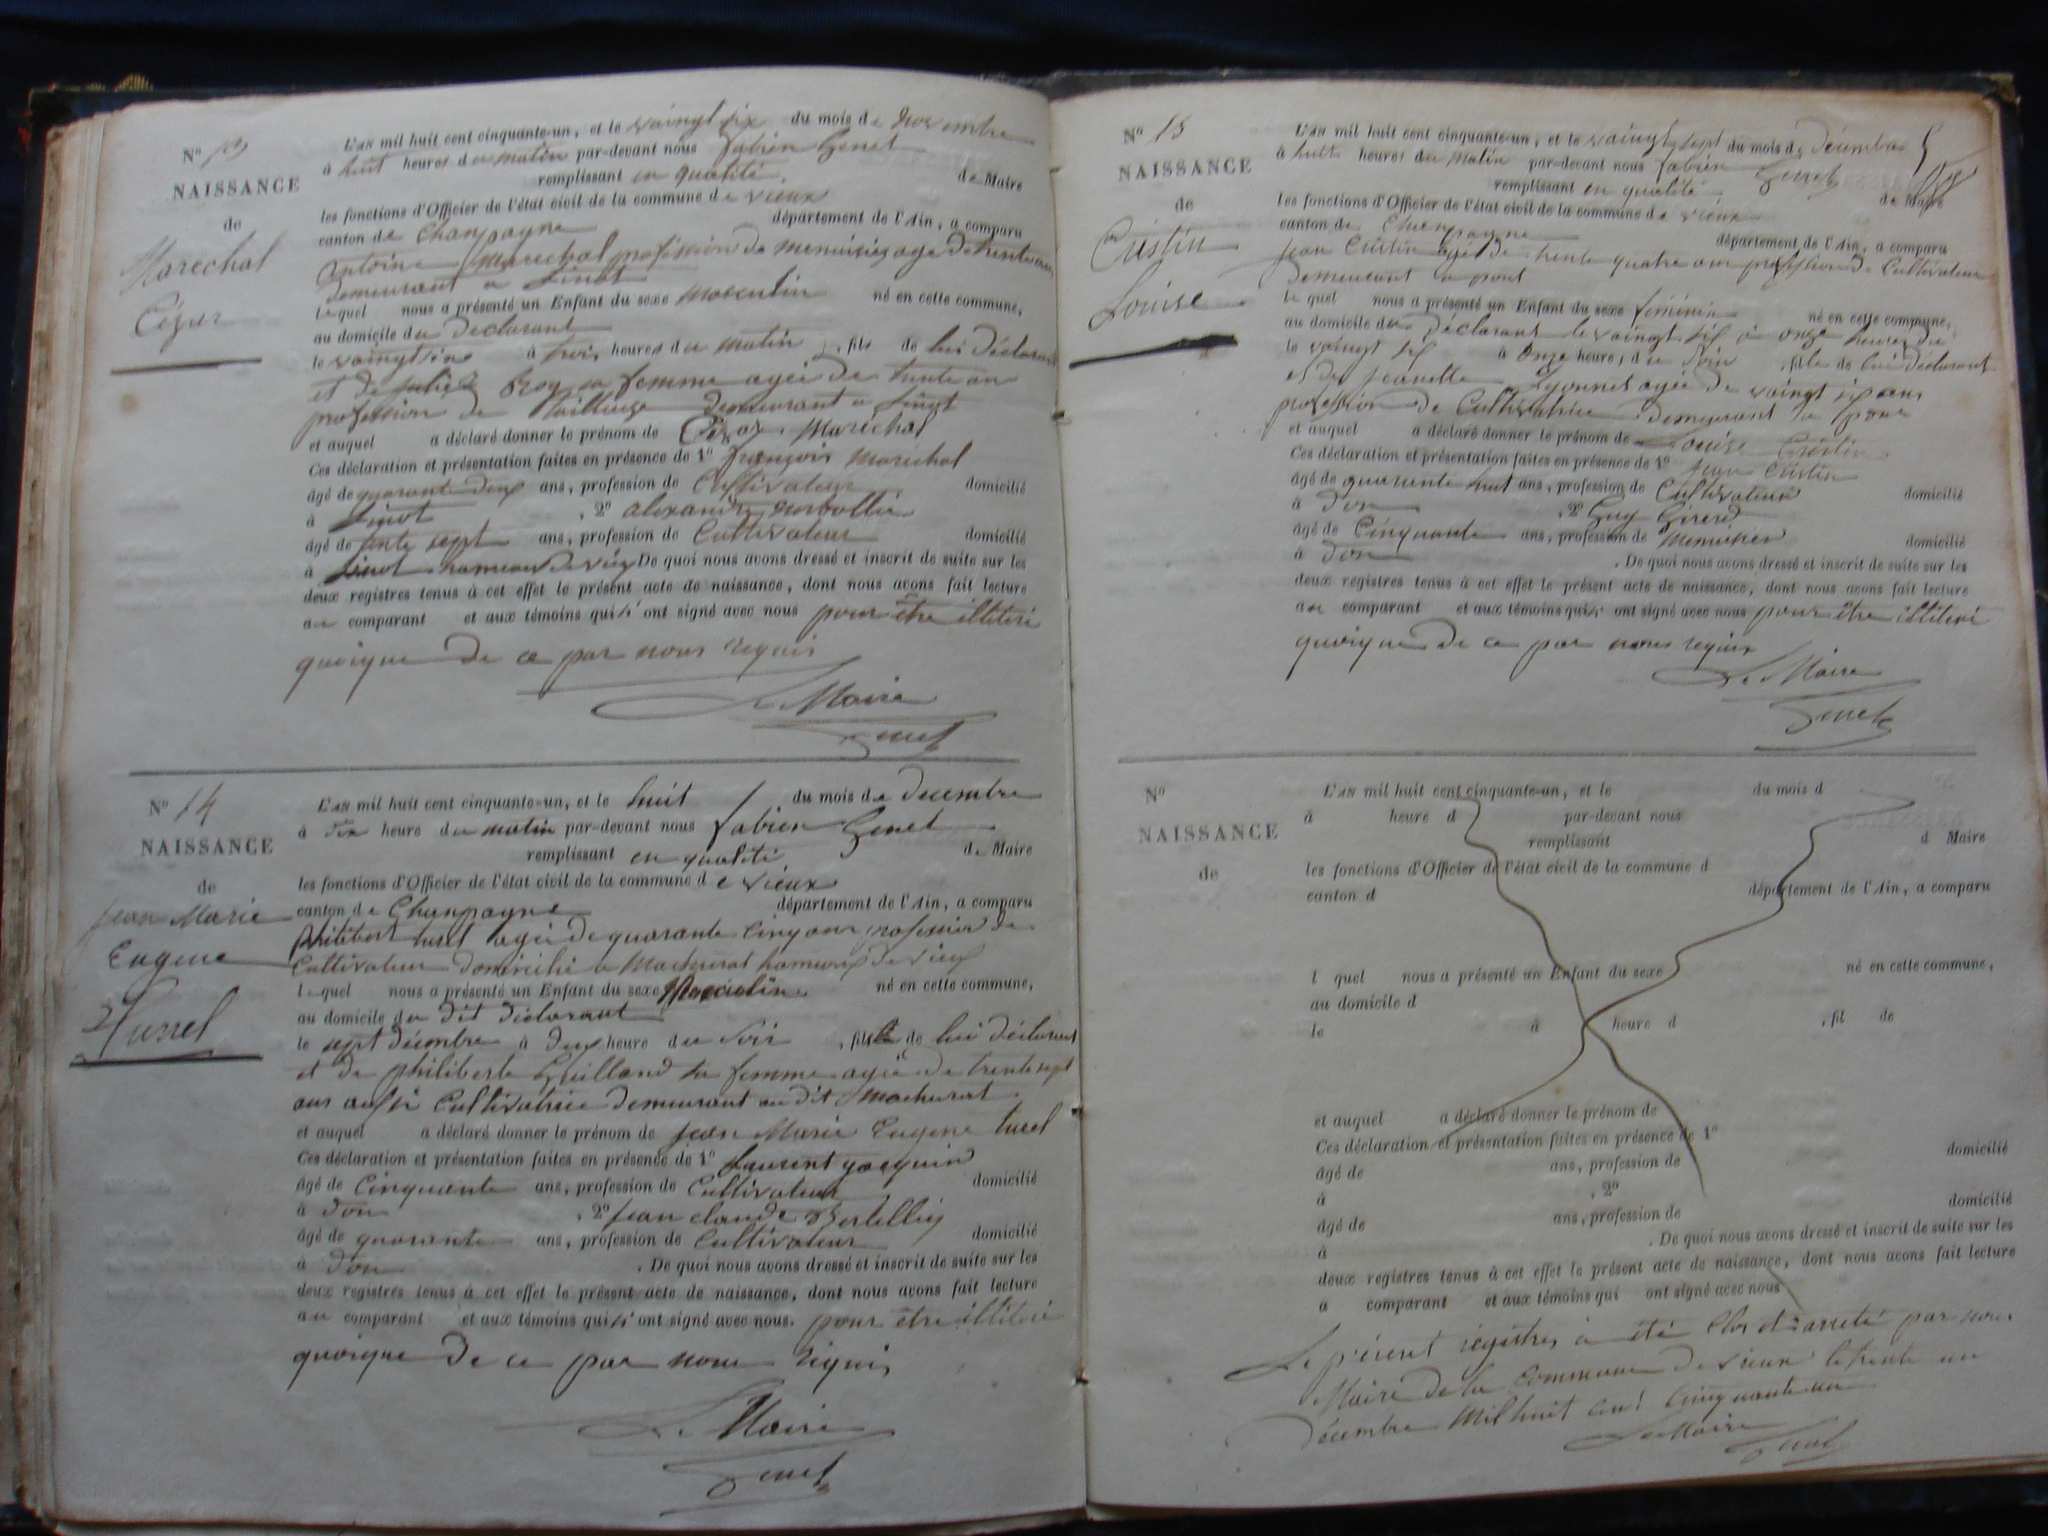 N° 13
NAISSANCE
de
Marechal
Cézar
L'AN mil huit cent cinquante-un, et le vaingt six du mois de novembre
à huit heures du matin par-devant nous fabien Genet
remplissant en qualité de Maire
les fonctions d'Officier de l'état civil de la commune de vieux
canton de Chanpagne département de l'Ain, a comparu
antoine Marechal profession de menuisier age de trente
demeurant a
Lequel nous a présenté un Enfant du sexe masculin né en cette commune,
au domicile du declarant
le à trois heures du matin , fils de lui déclarant
et de Roy sa femme agée de trente an
profession de tailleuse demeurant a
et auquel a déclaré donner le prénom de Cézar Maréchal
Ces déclaration et présentation faites en présence de 1° françois Maréchal
âgé de quarante deux ans, profession de Cultivateur domicilié
à , 2° alexandre
âgé de trente sept ans, profession de Cultivateur domicilié
à hameau de vieux De quoi nous avons dressé et inscrit de suite sur les
deux registres tenus à cet effet le présent acte de naissance, dont nous avons fait lecture
au comparant et aux témoins qui n'ont signé avec nous pour être illitéré
quoique de ce par nous requis
Le Maire
Genet
N° 14
NAISSANCE
de
Jean Marie
Eugene
Turrel
L'AN mil huit cent cinquante-un, et le huit du mois de decembre
à dix heure du matin par-devant nous fabien Genet
remplissant en qualité de Maire
les fonctions d'Officier de l'état civil de la commune de vieux
canton de Chanpagne département de l'Ain, a comparu
philibert turel agée de quarante cinq ans profession de
Cultivateur domicilié a Machurat hameau de vieux
lequel nous a présenté un Enfant du sexe Masculin né en cette commune,
au domicile du dit déclarant
le sept décembre à deux heure du soir , fils de lui déclarant
et de philiberte Guilland sa femme agée de trente sept
ans aussi Cultivatrice demeurant au dit Machurat.
et auquel a déclaré donner le prénom de jean Marie Eugene turel
Ces déclaration et présentation faites en présence de 1° laurent
âgé de Cinquante ans, profession de Cultivateur domicilié
à don , 2° jean claude
âgé de quarante ans, profession de Cultivateur domicilié
à don . De quoi nous avons dressé et inscrit de suite sur les
deux registres tenus à cet effet le présent acte de naissance, dont nous avons fait lecture
au comparant et aux témoins qui n'ont signé avec nous. pour être illitéré
quoique de ce par nous réquis
Le Maire
Genet
N° 15
NAISSANCE
de
Cristin
Louise
L'AN mil huit cent cinquante-un, et le vaingt sept du mois de décembre
à huit heures du matin par-devant nous fabien Genet
remplissant en qualité de Maire
les fonctions d'Officier de l'état civil de la commune de vieux
canton de Chanpagne département de l'Ain, a comparu
jean Cristin agé de trente quatre ans profession de Cultivateur
demeurant a pont
lequel nous a présenté un Enfant du sexe féminin né en cette commune,
au domicile du déclarant le vaingt six à onze heures du
le vaingt six à onze heures du soir , fille de lui déclarant
et de jeanette Lyonnet agée de vaingt six ans
profession de Cultivatrice demeurant a pont
et auquel a déclaré donner le prénom de Louise Cristin
Ces déclaration et présentation faites en présence de 1° jean Cristin
âgé de quarante huit ans, profession de Cultivateur domicilié
à don , 2° Guy
âgé de Cinquante ans, profession de Menuisier domicilié
à don . De quoi nous avons dressé et inscrit de suite sur les
deux registres tenus à cet effet le présent acte de naissance, dont nous avons fait lecture
au comparant et aux témoins qui n' ont signé avec nous pour être illitéré
quoique de ce par nous requis
Le Maire
Genet
N°
NAISSANCE
de
L'AN mil huit cent cinquante-un, et le du mois d
à heure d par-devant nous
remplissant d Maire
les fonctions d'Officier de l'état civil de la commune d
canton d département de l'Ain, a comparu
l quel nous a présenté un Enfant du sexe né en cette commune,
au domicile d
le à heure d , fil de
et auquel a déclaré donner le prénom de
Ces déclaration et présentation faites en présence de 1°
âgé de ans, profession de domicilié
à , 2°
âgé de ans, profession de domicilié
à . De quoi nous avons dressé et inscrit de suite sur les
deux registres tenus à cet effet le présent acte de naissance, dont nous avons fait lecture
a comparant et aux témoins qui ont signé avec nous
Le présent régistres à été Clos et arreté par nous
Maire de la Commune de vieux le trente un
décembre Mil huit cent Cinquante un
Le Maire
Genet